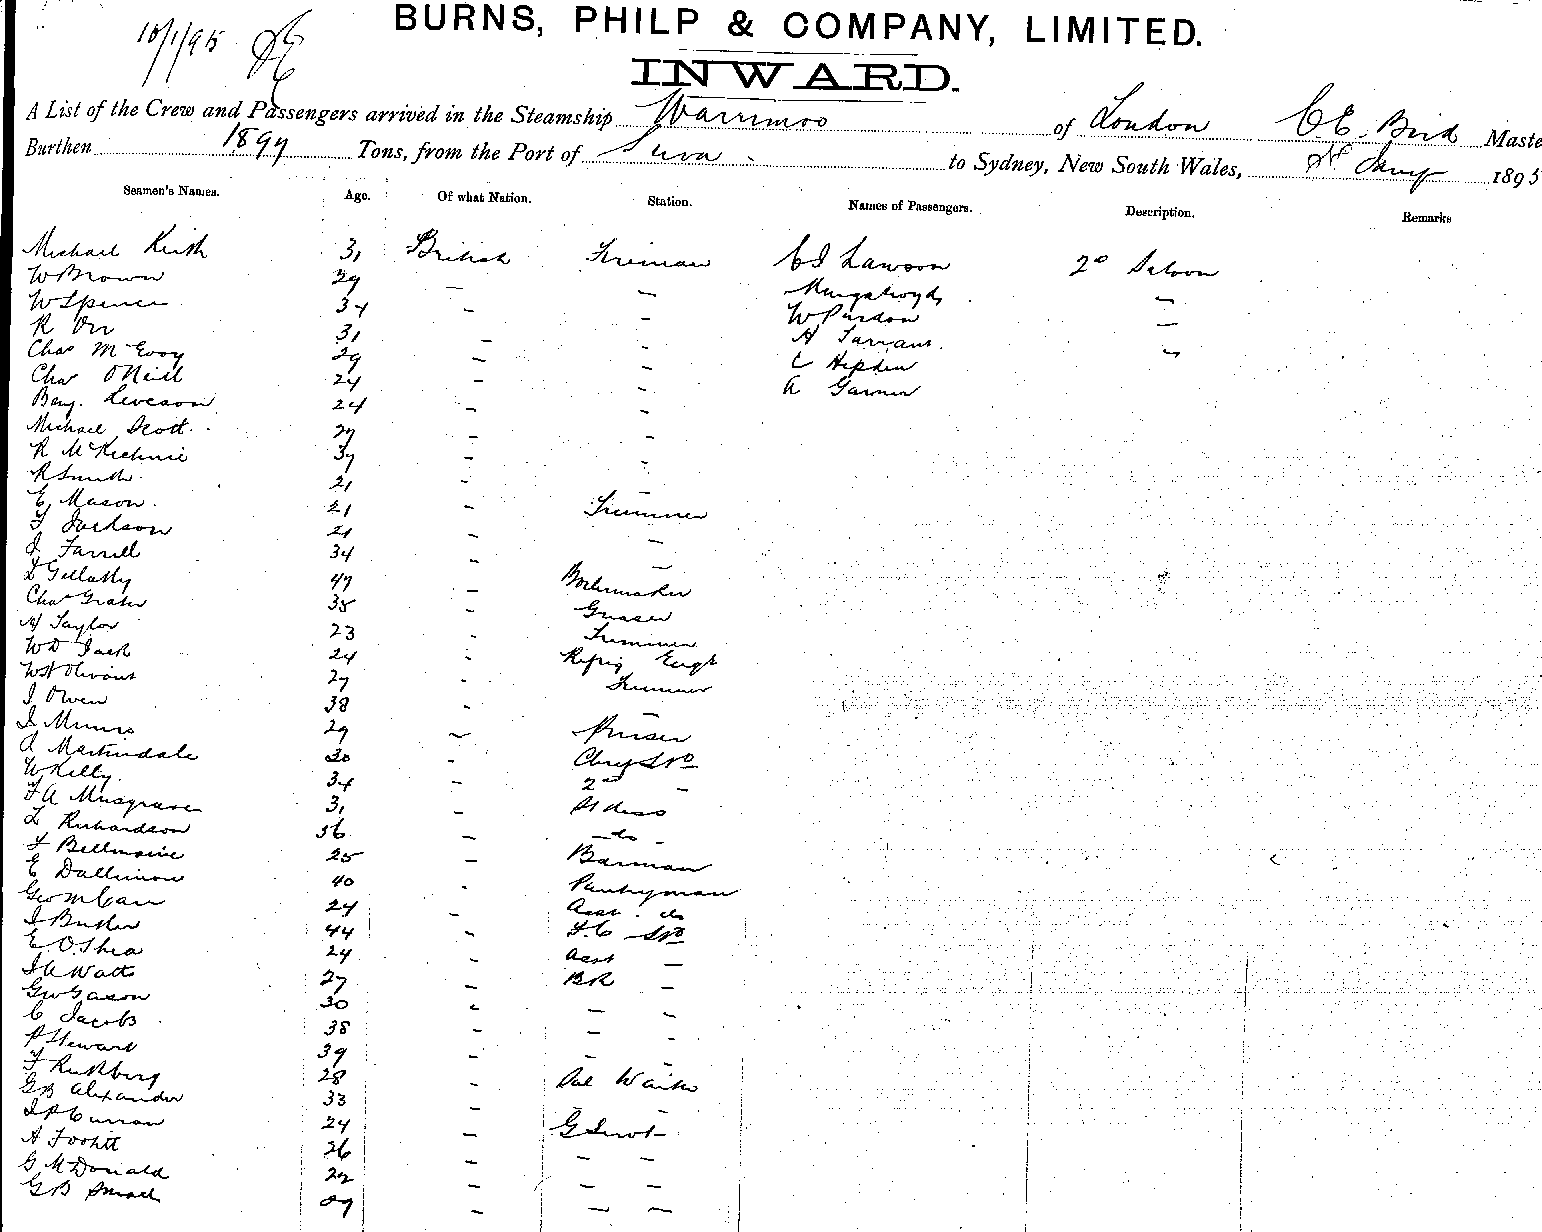 10/1/95
BURNS, PHILP & COMPANY, LIMITED.
INWARD.
A List of the Crew and Passengers arrived in the Steamship Warrimoo of London C.E. Bird Maste
Burthen 1897 Tons, from the Port of Suva to Sydney, New South Wales, 1895
Seamen's Names. Age. Of what Nation. Station. Names of Passengers. Description. Remarks
Michael Keith 31 British Fireman Lawson 2º Saloon
W Brown 29 — — Murgatroyd —
W Spencer 34 - - W Purdon —
R Orr 31 - - H Tarrant
Chas McEvoy 29 - - Hepden
Chas O'Neill 24 - - A Garner
Benj. Leveson 24 - -
Michael Scott 27 - -
R McKechnie 37 - -
R Smith 21 - —
E Mason 21 - Trimmer
Jackson 21 - —
Farrell 34 - —
Gellatly 47 - Boilermaker
Chas 35 - Greaser
H Taylor 23 - Trimmer
W D Jack 24 - Refrig Engr
27 - Trimmer
J Owen 38 - —
J Munro 29 - Purser
A Martindale 30 - Chf Std
W Kelly 34 - 2º -
F A Musgrave 31 - Stdess
Richardson 36 - do -
25 - Barman
E 40 - Pantryman
Geo 24 - Asst. do
J Butler 44 - F.C. Std
E O'Shea 24 - Asst —
J A Watt 27 - BR —
Geo Gason 30 - — -
C Jacobs 38 - — -
P Stewart 39 - — -
28 - Sal Waiter
G B Alexander 33 - — -
J P Curran 24 - G Servt
A 26 - — -
G McDonald 22 - — —
G B 29 - — —